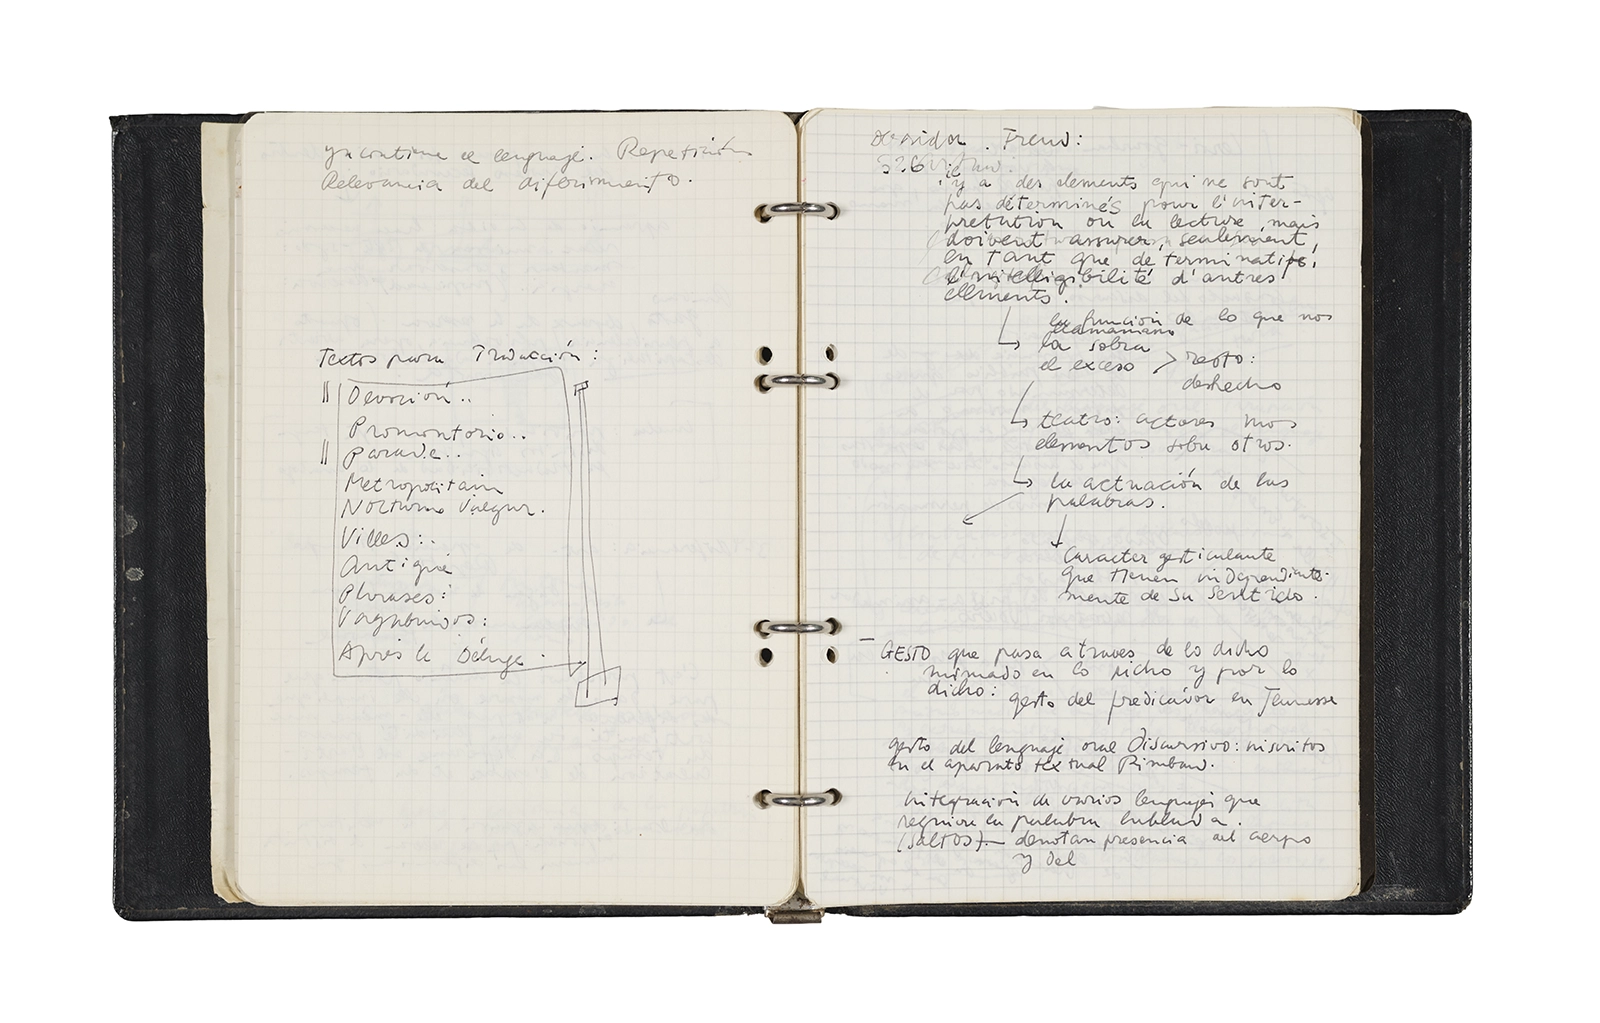 ya contiene el lenguaje. Repetición
Relevancia del diferimiento.
Textos para Traducción:
Devoción..
Promontorio..
Parade..
Metropolitain
Nocturno Vulgar.
Villes:.
Antique
Phrases:
Vagabundos:
Après le Déluge.
Derrida. Freud:
326
il y a des elements qui ne sont
pas déterminés pour l'inter-
pretation ou la lecture mais
doivent assurer, seulement,
en tant que determinatifs,
l'intelligibilité d'autres
elements.
la función de lo que nos
la sobra
el exceso > resto:
deshecho
teatro: actores unos
elementos sobre otros.
la actuación de las
palabras.
Caracter gesticulante
que tienen independiente-
mente de su sentido.
- GESTO que pasa a traves de lo dicho
mimado en lo dicho y por lo
dicho:
gesto del predicador en Jeunesse
gesto del lenguaje oral Discursivo: inscritos
en el aparato textual Rimbaud.
integración de varios lenguajes que
requiere la palabra hablada.
(SALTOS).— denotan presencia del cuerpo
y del